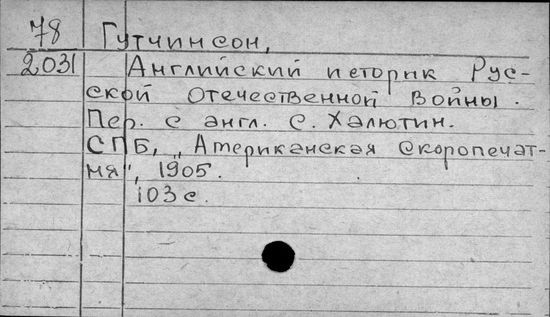 78 Гутчинсон,
2031 Английский историк Рус-
ской отечественной войны.
Пер. с англ. С. Халютин.
СПБ, „Американская скоропечат-
ня", 1905.
103 с.